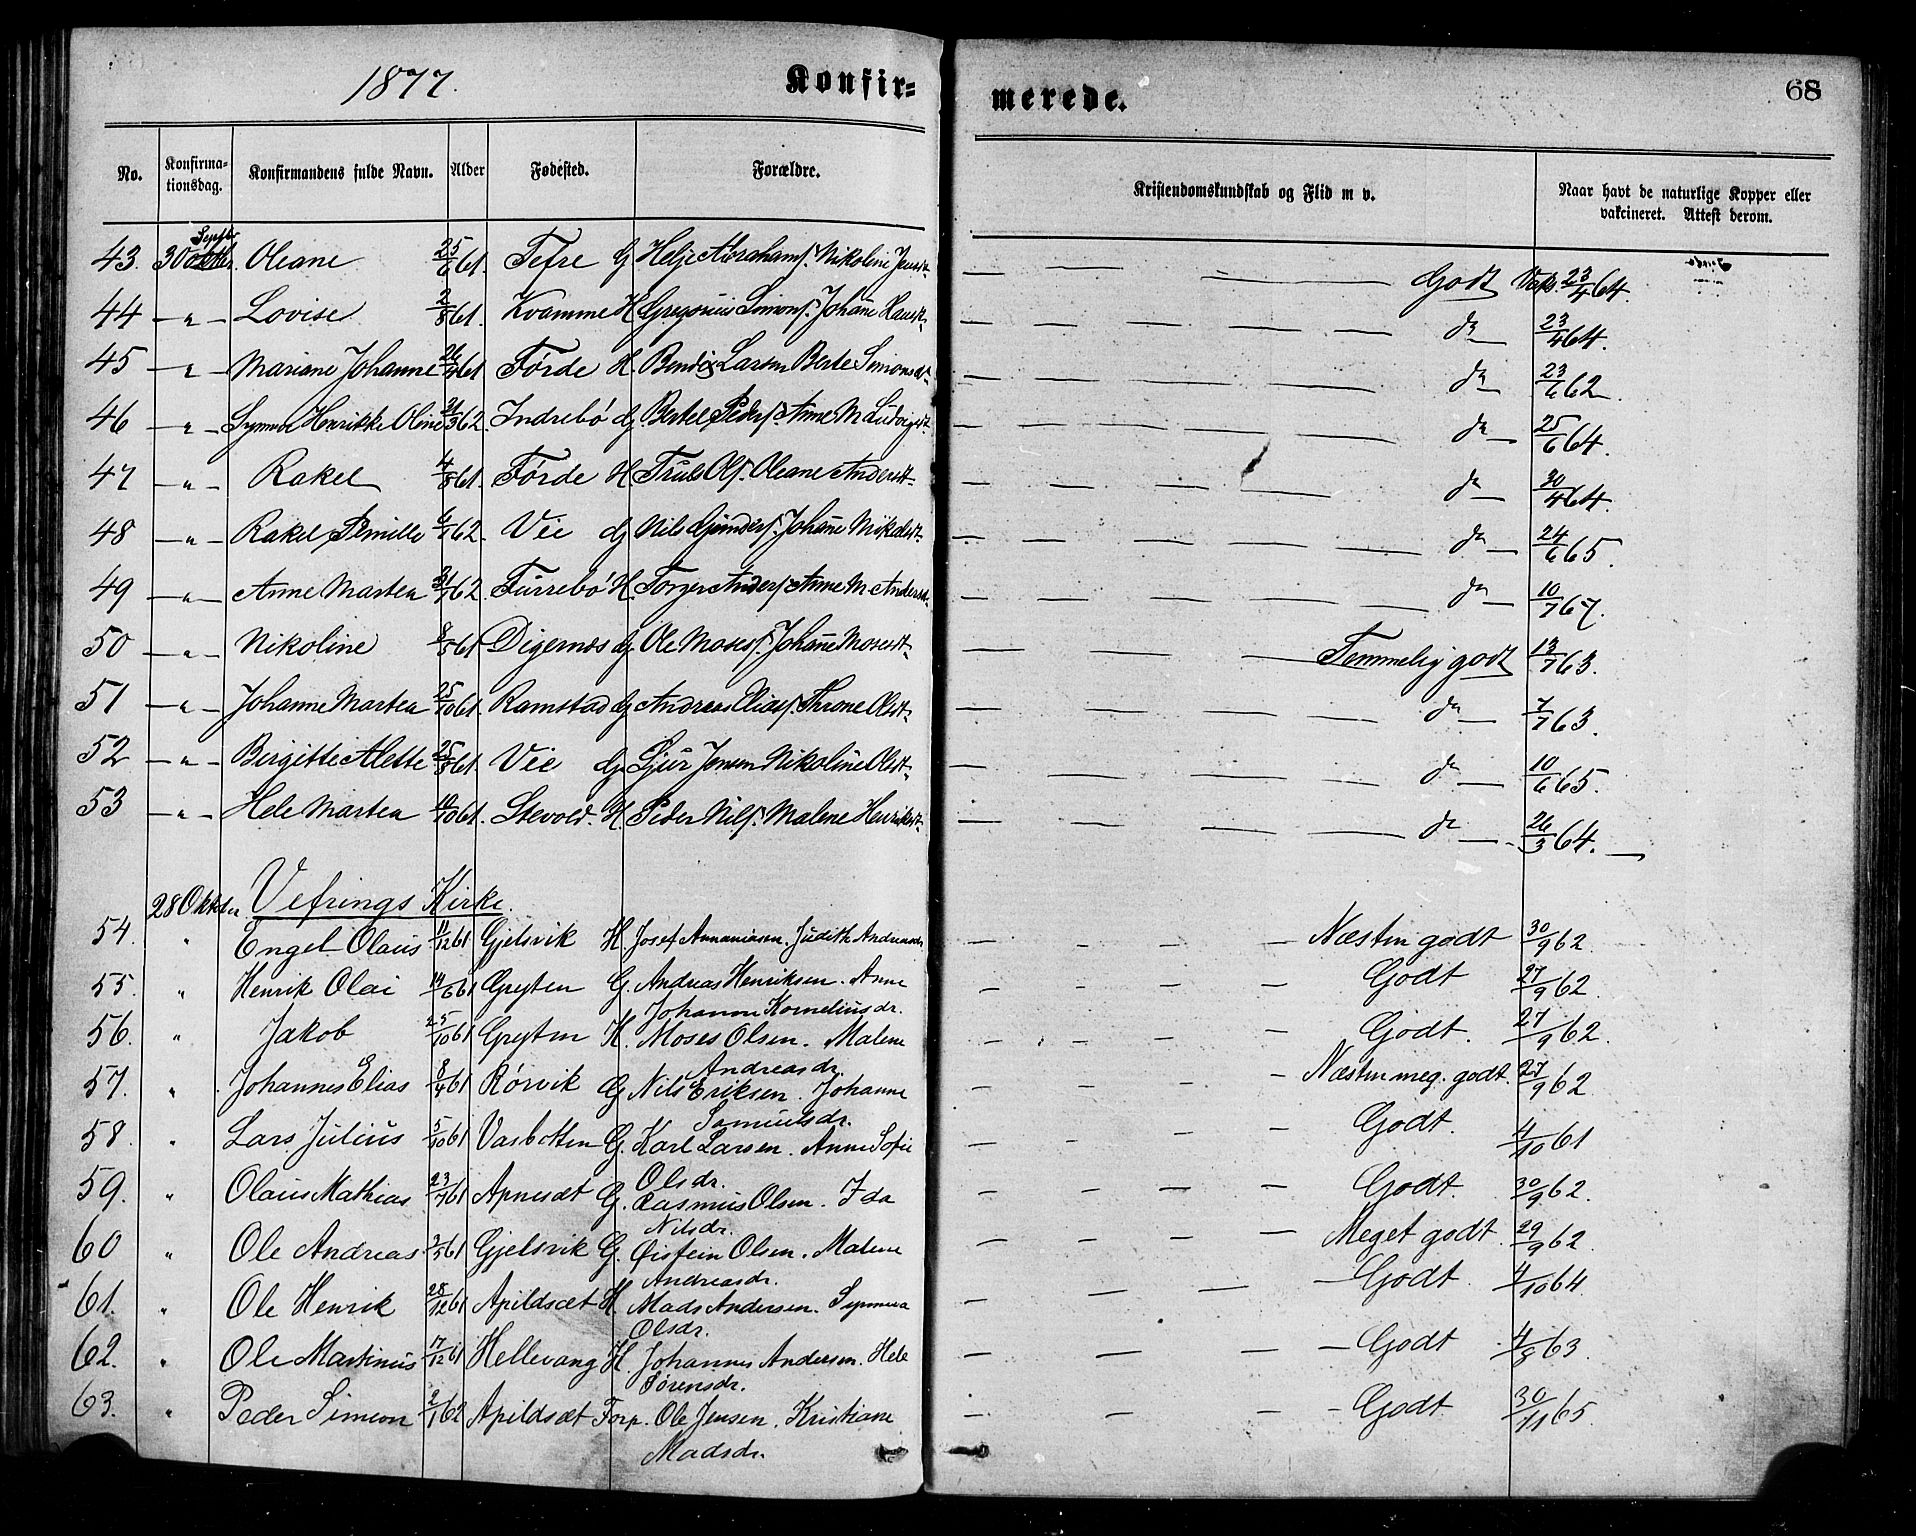 1877. Konfir- merede. 68
No. Konfirma- tionsdag. Konfirmandens fulde Navn. Alder Fødested. Forældre. Kristendomskundskab og Flid m v. Naar havt de naturlige Kopper eller vakcineret. Attest derom.
Septbr
43. 30 Oleane 25/6 61. Tefre G Helje Abrahams. Nikoline Jensdt. — — — Godt Vaks. 23/4 64.
44 — " — Lovise 2/8 61. Kvamme H Gregorius Simons. Johane Hansdt. — — — — do — 23/4 64.
45 — " — Mariane Johanne 61 Førde H. Bendix Larsen Berte Simonsdt. — — — — do — 23/6 62.
46 — " — Synneve Henrikke Oline 62. Indrebö G. Bertel Peders. Anne M Ludvigsdt. — — — — do — 25/6 64.
47 — " — Rakel 4/8 61. Førde H Truls Ols. Oleane Andersdt. — — — — do — 30/4 64.
48 — " — Rakel Pernille 6/7 62. Vie G Nils Johane Mikelsdt. — — — — — do — 24/6 65.
49 — " — Anne Martea 62 Furrebö H. Torger Anders. Anne M. Andersdt. — — — — — do — 10/7 67.
50 — " — Nikoline 8/5 61 Digernes G Ole Moses. Johane Mosesdt. — — — Temmelig godt 13/7 63.
51 — " — Johanne Martea 25/10 61. Ramstad G Andreas Elias. Throne Olsdt. — — — — do — 7/7 63.
52 — " — Birgitte Alette 25/8 61. Vie G. Sjur Jensen Nikoline Olsdt. — — — — do — 10/6 65.
53 — " — Hele Martea 61. Stevold. H. Peder Nils. Malene Henriksdt. — — — — do — 26/3 64. —
28 Oktober Vefrings Kirke.
54. " Engel Olaus 11/12 61 Gjelsvik H. Josef Annaniasen. Judith Andreasdr. — — — — Næsten godt 30/9 62.
55. " Henrik Olai 14/6 61 Grytten G. Andreas Henriksen. Anne — — — — Godt 27/9 62.
Johanne Korneliusdr.
56. " Jakob 25/10 61 Grytten H. Moses Olsen. Malene — — — — Godt. 27/9 62.
Andreasdr.
57. " Johannes Elias 8/4 61 Rørvik G Nils Eriksen. Johanne — — — — Næsten meg. godt. 27/9 62
Samuelsdr.
58. " Lars Julius 5/10 61 Vasbotten G. Karl Larsen. Anne Sofie — — — — Godt. 4/10 61
Olsdr.
59. " Olaus Mathias 23/7 61 Apnesæt G. Rasmus Olsen. Ida — — — — Godt. 30/9 62.
Nilsdr.
60 " Ole Andreas 61 Gjelsvik G. Øistein Olsen. Malene — — — — Meget godt. 29/9 62.
Andreasdr.
61. " Ole Henrik 28/12 61 Apildsæt H. Mads Andersen. Synneva — — — — Godt. 4/10 64
Olsdr.
62. " Ole Martinus 17/12 61 Hellevang H. Johannes Andersen. Hele — — — — Godt 4/8 63.
Sörensdr.
63. " Peder Simeon 2/1 62 Apildsæt Forp. Ole Jensen. Kristiane — — — — Godt. 30/11 65.
Madsdr.